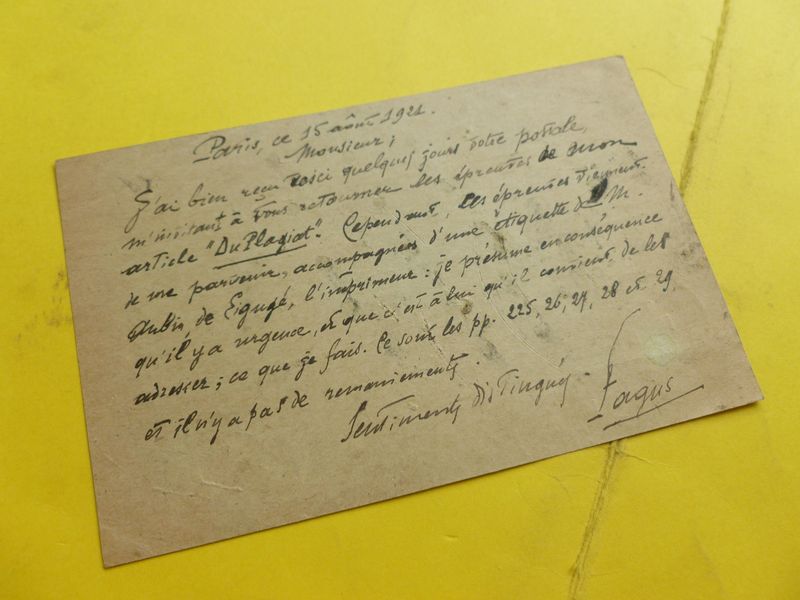 Paris, ce 15 août 1921.
Monsieur;
J'ai bien reçu voici quelques jours votre postale,
m'invitant à vous retourner les épreutes de mon
article "Du Plagiat". Cependant, les épreutes viennent
de me parvenir, accompagnées d'une étiquette de M.
Aubin, de Ligugé, l'imprimeur: je présume en conséquence
qu'il y a urgence, et que c'est à lui qu'il convient de les
adresser; ce que je fais. Ce sont les pp. 225, 26, 27, 28 et 29.
et il n'y a pas de remaniements.
Sentiments distingués.
Fagus